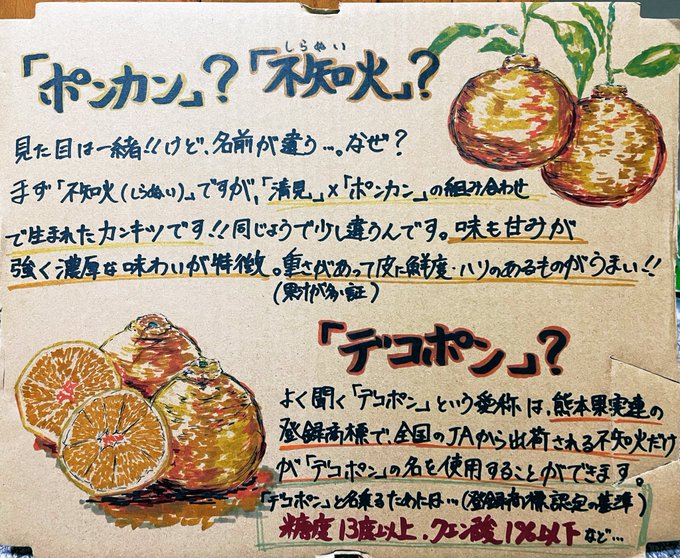 しらぬい
「ポンカン」?「不知火」?
見た目は一緒!!けど、名前が違う…。なぜ?
まず「不知火(しらぬい)」ですが、「清見」×「ポンカン」の組み合わせ
で生まれたカンキツです!!同じようで少し違うんです。味も甘みが
強く濃厚な味わいが特徴。重さがあって皮に鮮度・ハリのあるものがうまい!!
(果汁が多い証)
「デコポン」?
よく聞く「デコポン」という愛称は、熊本果実連の
登録商標で、全国のJAから出荷される不知火だけ
が「デコポン」の名を使用することができます。
「デコポン」と名乗るためには…(登録商標認定の基準)
糖度13度以上、クエン酸1%以下など…